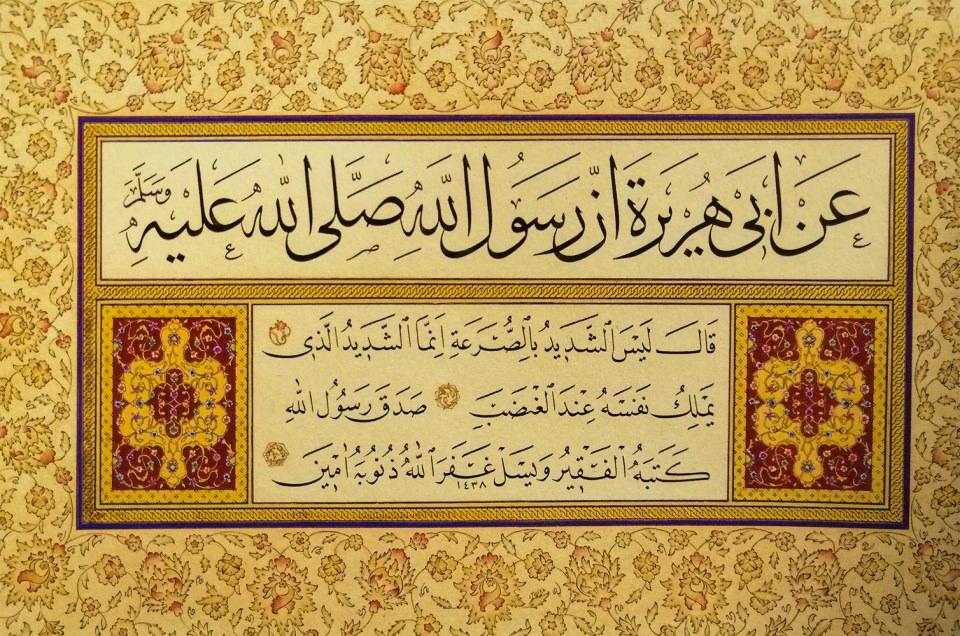 عَنْ اَبِى هُرَيْرَةَ اَنَّ رَسُولَ اللهِ صَلَّى اللهُ عَلَيْهِ وَسَلَّمَ
قَالَ لَيْسَ الشَّدِيدُ بِالصُّرَعَةِ اِنَّمَا الشَّدِيدُ الَّذِى
يَمْلِكُ نَفْسَهُ عِنْدَ الْغَضَبِ صَدَقَ رَسُولُ اللهِ
كَتَبَهُ الْفَقِيرُ وَيسَلْ غَفَرَ اللهُ ذُنُوبَهُ اٰمِينَ ١٤٣٨